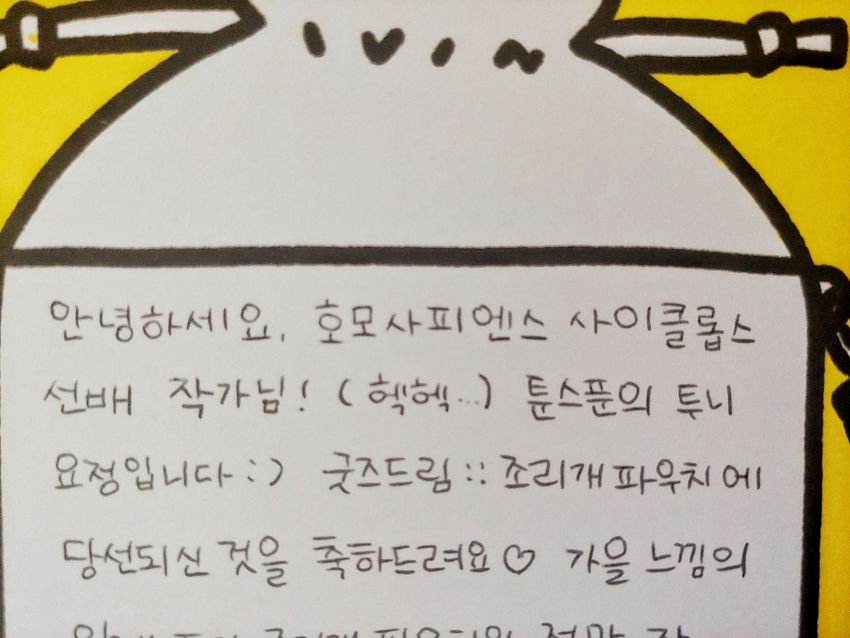 안녕하세요, 호모사피엔스 사이클롭스
선배 작가님! (헥헥...) 툰스푼의 투니
요정입니다:) 굿즈드림:: 조리개파우치에
당선되신 것을 축하드려요♡ 가을 느낌의